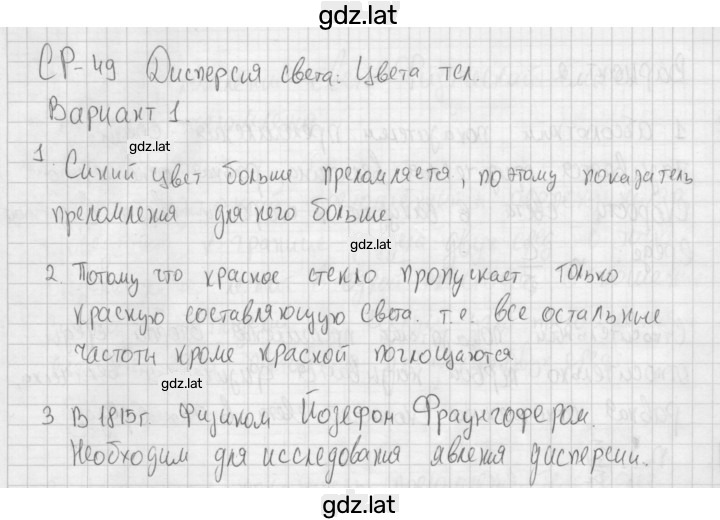 gdz.lat
СР-49 Дисперсия света. Цвета тел.
Вариант 1.
gdz.lat
1. Синий цвет больше преломляется, поэтому показатель
преломления для него больше.
gdz.lat
2. Потому что красное стекло пропускает только
красную составляющую света. т.е. все остальные
частоты кроме красной поглощаются
gdz.lat
3 В 1815г. Физиком Йозефом Фраунгофером.
Необходим для исследования явления дисперсии.
gdz.lat
gdz.lat